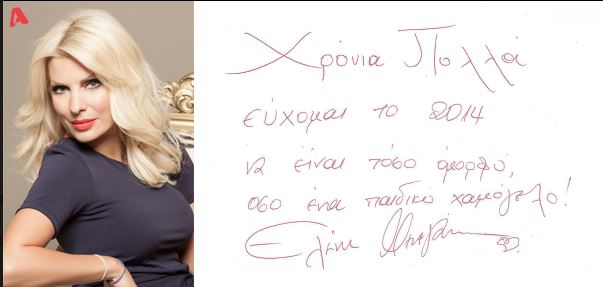 A
Χρόνια Πολλά
εύχομαι το 2014
να είναι τόσο όμορφο,
όσο ένα παιδικό χαμόγελο!
Ελένη